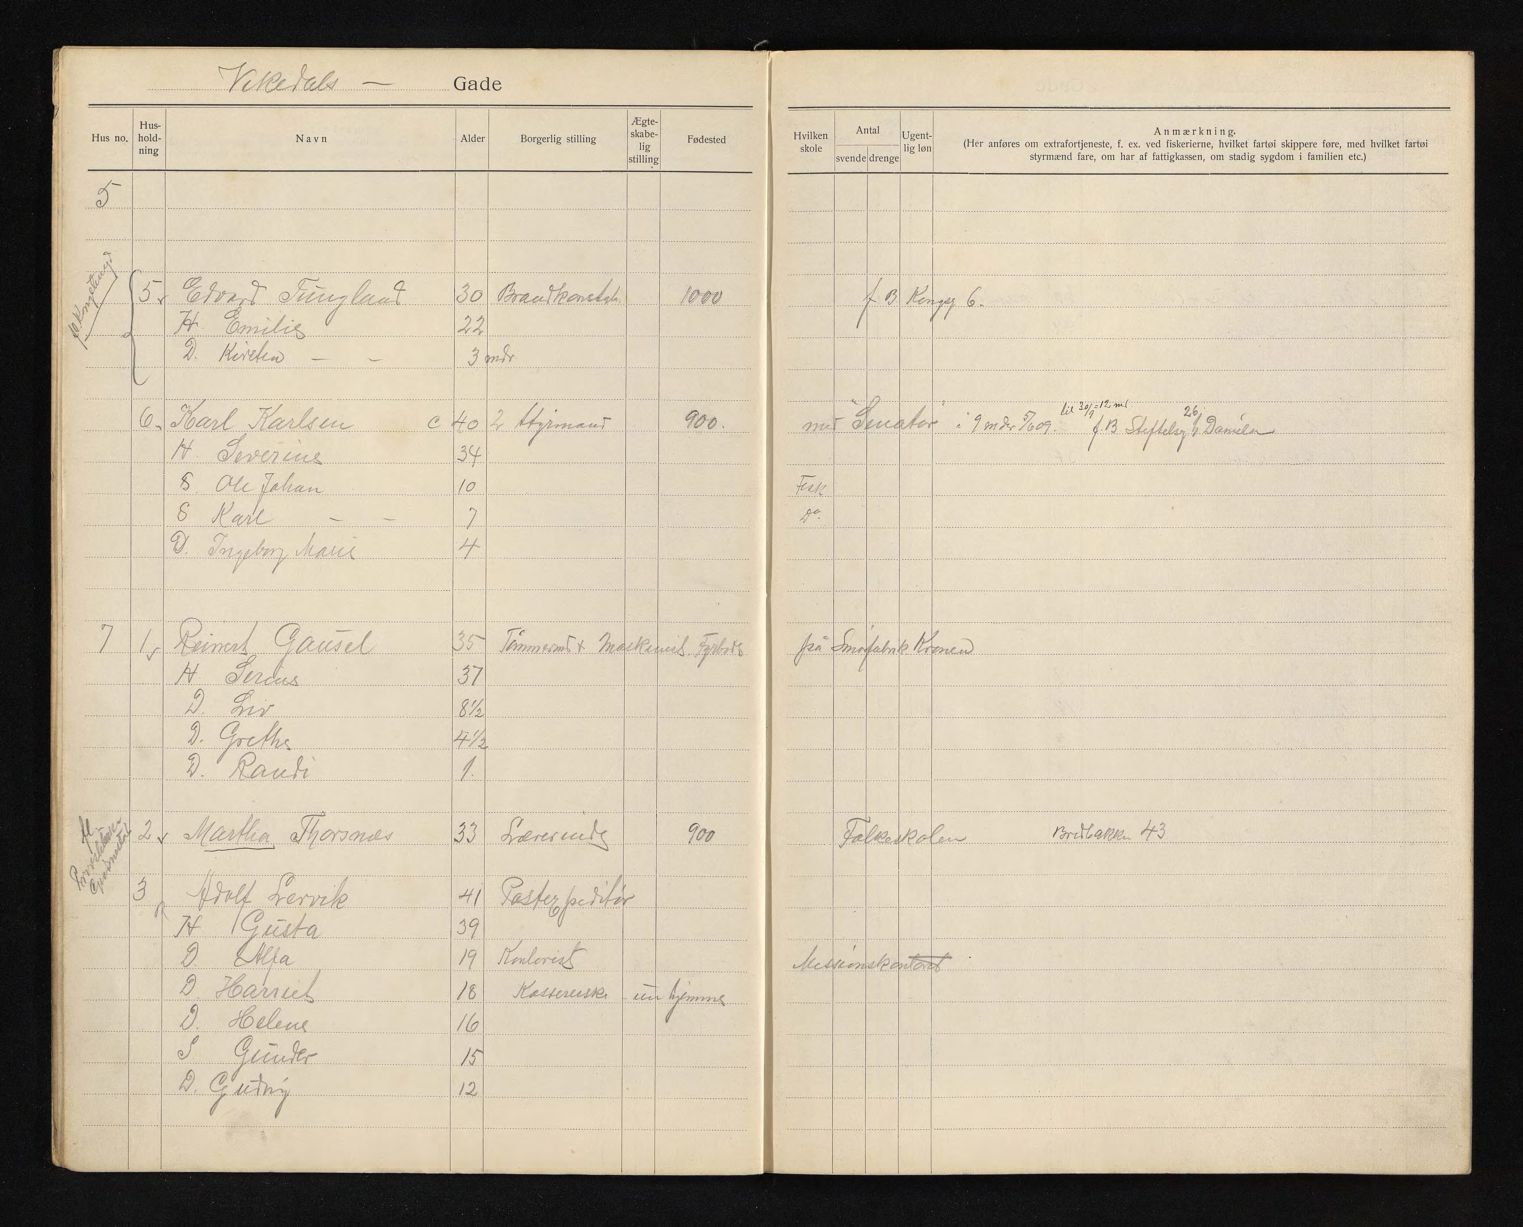 Vikedals — Gade
Hus no. Hus-hold-ning Navn Alder Borgerlig stilling Ægte-skabe-lig stilling Fødested
Hvilken skole Antal svende drenge Ugent-lig løn Anmærkning.
(Her anføres om extrafortjeneste, f. ex. ved fiskerierne, hvilket fartøi skippere føre, med hvilket fartøi
styrmænd fare, om har af fattigkassen, om stadig sygdom i familien etc.)
5
5 Edvard Tungland 30 Brandkonstab. 1000 f B Kongsg 6.
H Emilie 22
D. Kirsten — — 3 mdr
6 Karl Karlsen c 40 2 Styrmand 900. med "Senator" i 9 mder 5/6 09. til 30/9 = 12 md f. B Stiftelsg 26 Danielsen
H Severine 34
S Ole Johan 10 Fosk
S Karl — — 7 Do.
D. Ingeborg Marie 4
7 1 Reinert Gausel 35 Tømmermd + Maskinist. på Smørfabrik Kronen
H Serine 37
D. Liv 8½
D. Grethe 4½
D. Randi 1.
2 Martha Thorsnæs 33 Lærerinde 900 Folkeskolen Bredbakken 43
3 Adolf Lervik 41 Postexpeditør
H Gusta 39
D. Alfa 19 Kontorist Missionskontoret
D. Harriet 18 Kassererske - nu hjemme
D. Helene 16
S Gunder 15
D. Gudny 12